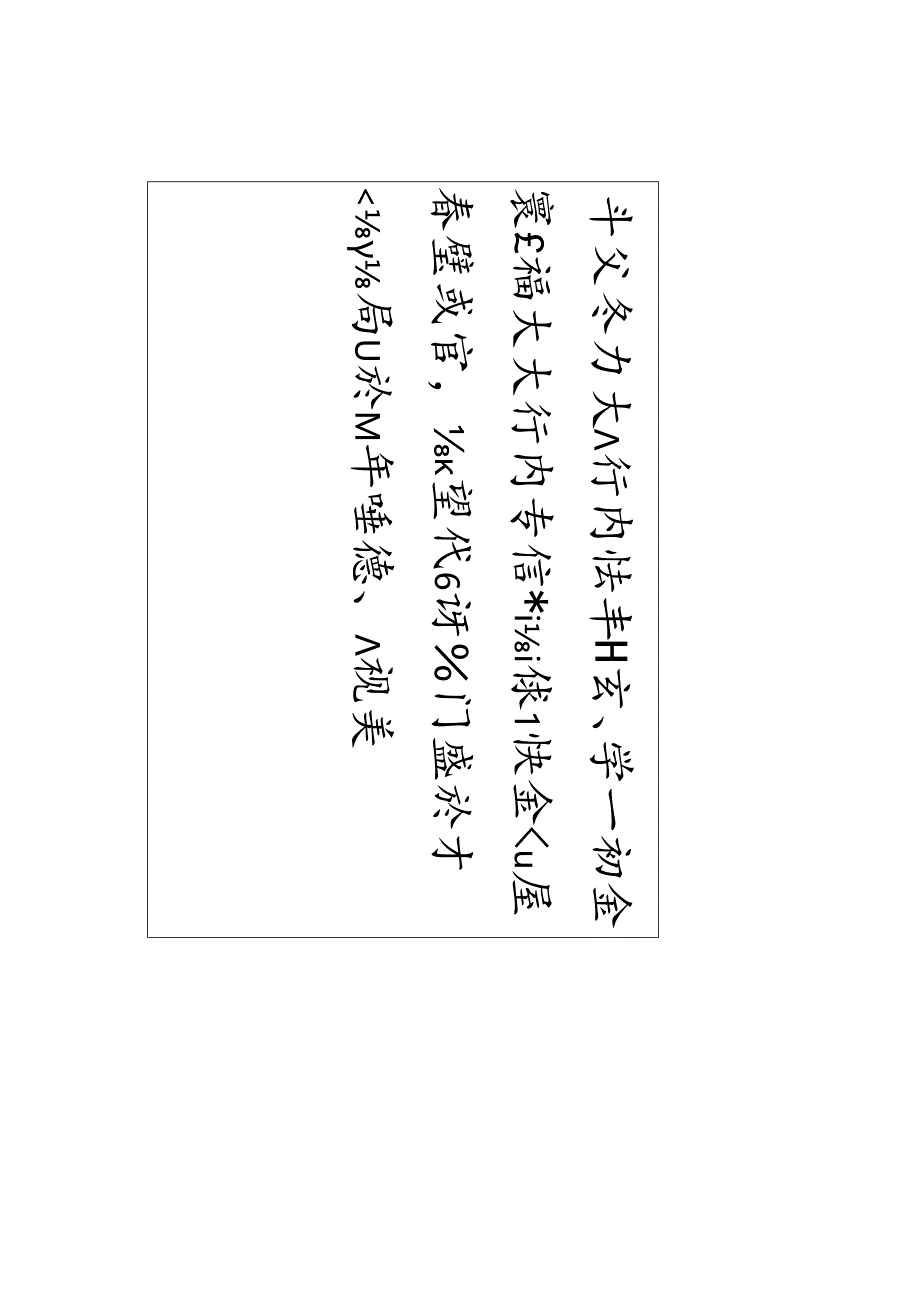 斗父冬力大Λ行内怯丰H玄、学一初金
寰£福大大行内专信*i⅛i俅1快金<u屋
春壁或官，⅛κ望代6讶%门盛於才
<⅛γ⅛局U於M年唾德、Λ视美